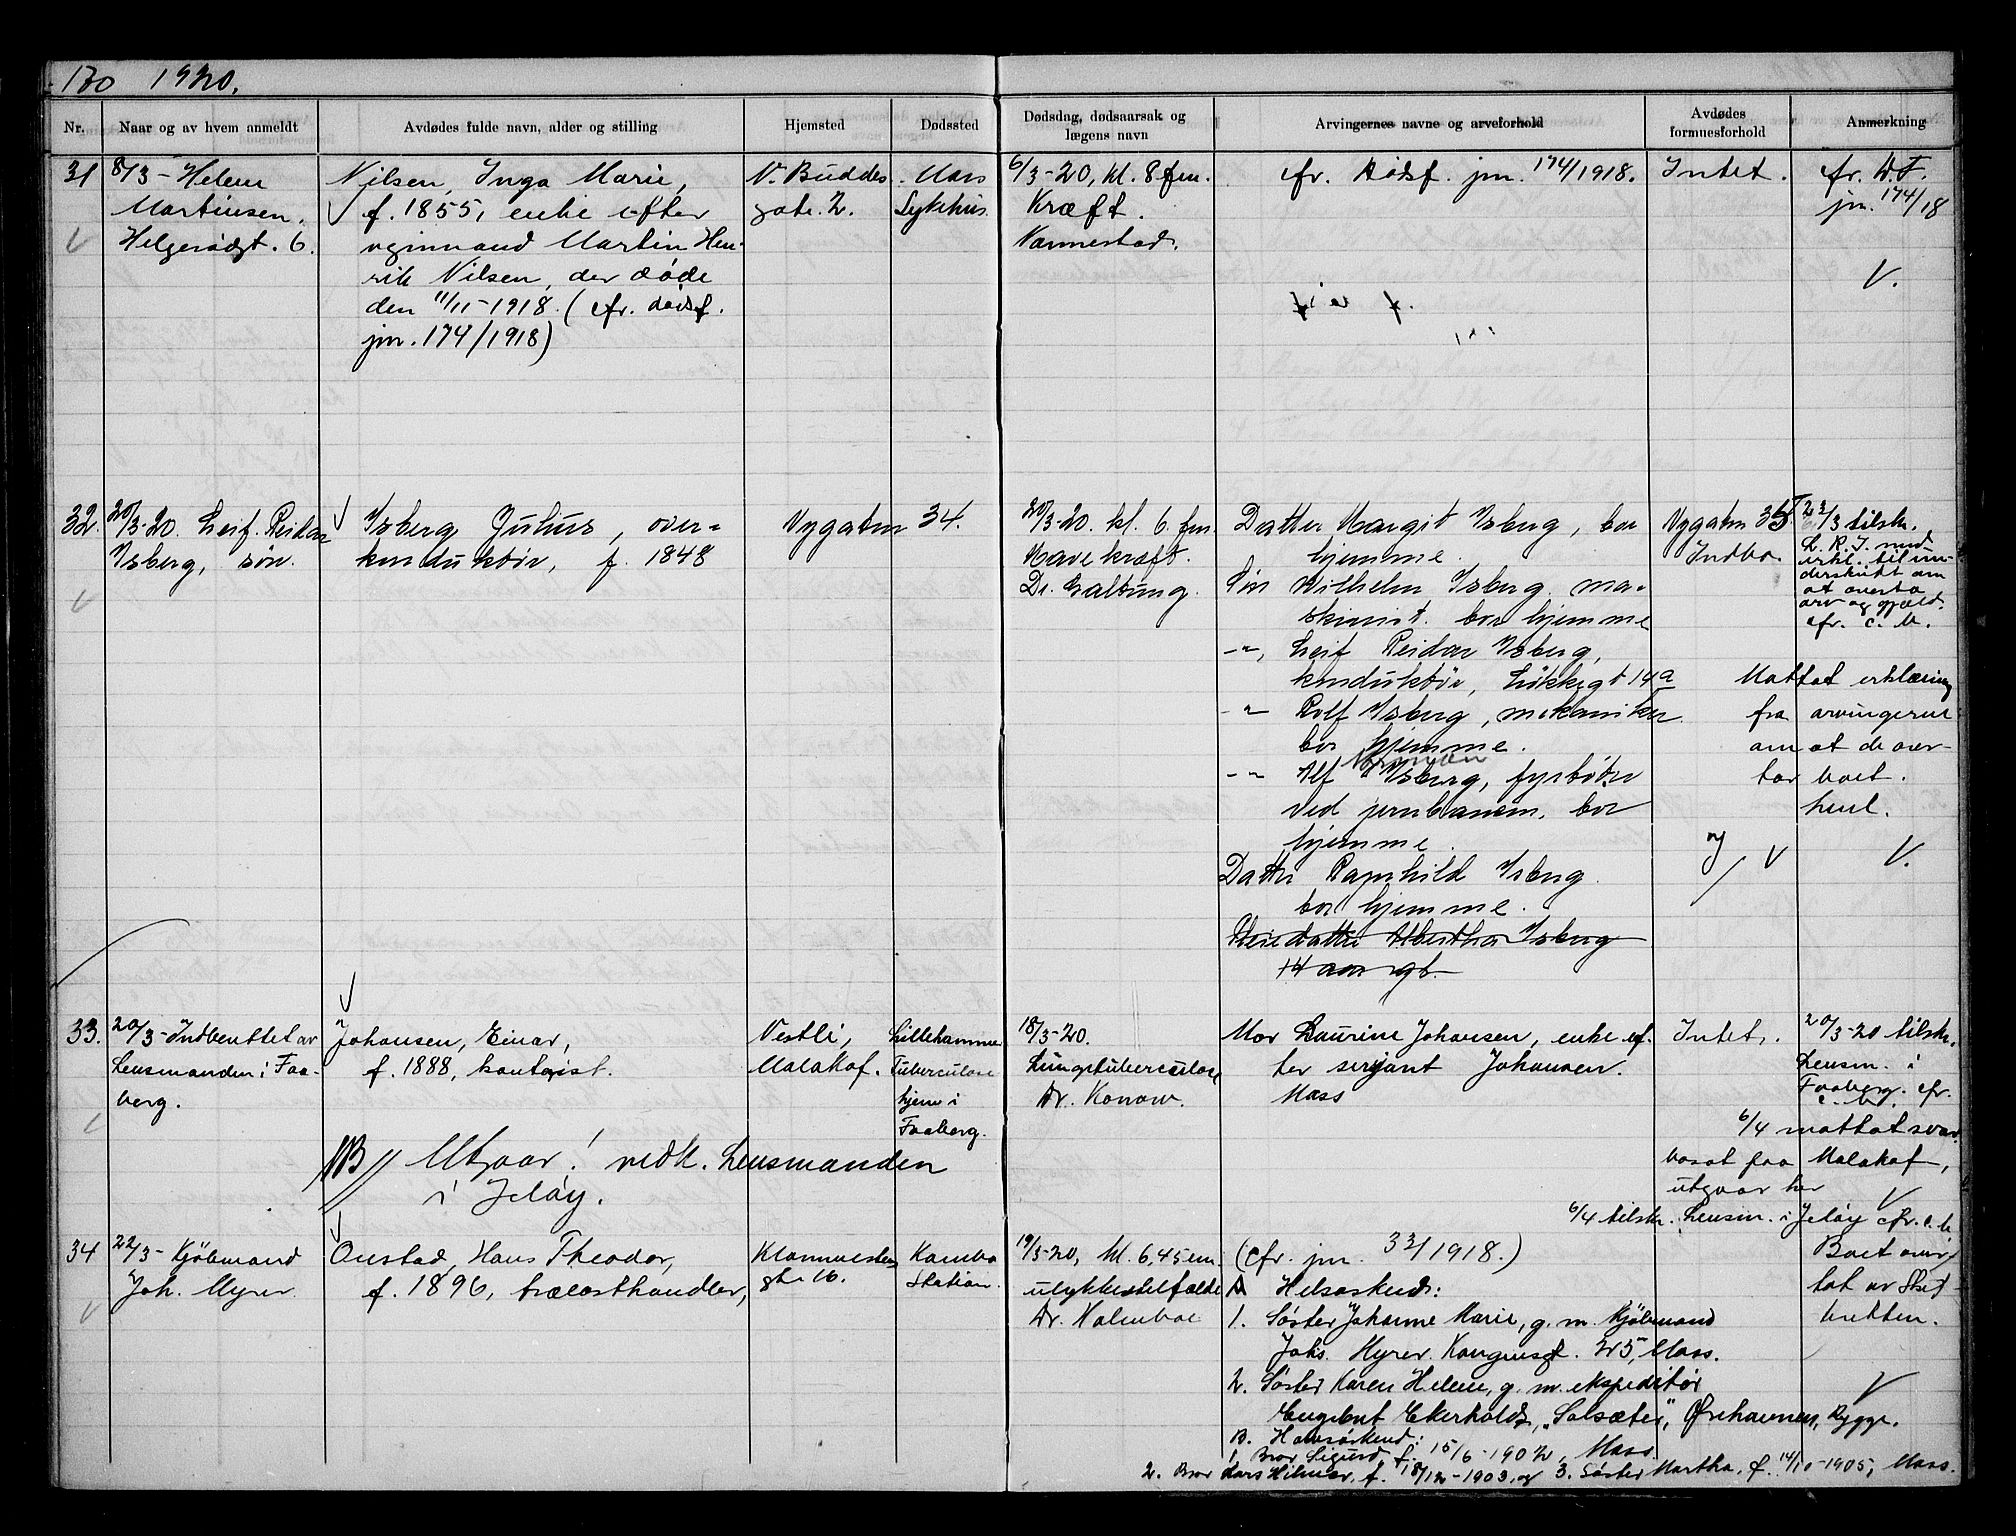 130 1920.
Nr. Naar og av hvem anmeldt Avdødes fulde navn, alder og stilling Hjemsted Dødssted Dødsdag, dødsaarsak og lægens navn Arvingernes navne og arveforhold Avdødes formuesforhold Anmerkning
31 8/3 - Helene
Martinsen.
Helgerødgt. 6.
Nilsen, Inga Marie,
f. 1855, enke efter
vognmand Martin Hen-
rik Nilsen, der døde
den 11/11-1918. (cfr. dødsf.
jm. 174/1918)
V. Buddes
gate. 2.
Moss
Sykehus.
6/3-20, kl. 8 fm.
Kræft.
Vannestad.
cfr. Dødsf. jm. 174/1918.
Intet.
cfr. D.F.
jn. 174/18
32. 20/3-20. Leif Reidar
Isberg, søn.
Isberg Julius, over-
konduktør, f. 1848
Nygaten 34.
20/3-20. kl. 6. fm.
Mavekræft.
Dr. Galtung.
Datter Margit Isberg, bor
hjemme.
Søn Wilhelm Isberg, ma-
skinist. bor hjemme
-"- Leif Reidar Isberg,
konduktør, Løkkegt 14a
-"- Rolf Isberg, mekaniker
bor hjemme.
-"- Alf Isberg, fyrbøter
ved jernbanen, bor
hjemme.
Datter Ragnhild Isberg.
bor hjemme.
Pleiedatter Albertha Isberg
14 aar gl.
Nygaten 35
Indbo.
23/3 tilskr.
L. R. I. med
erkl. til un-
derskrift om
at overta
arv og gjæld.
cfr. c. b.
Mottat erklæring
fra arvingerne
om at de over-
tar boet.
henl.
33. 20/3 - Indberettet av
Lensmanden i Faa-
berg.
Johansen, Einar,
f. 1888, kontorist.
Vestli,
Malakof.
Lillehammer
Tuberculose
hjem i
Faaberg.
18/3-20.
Lungetuberculose
Dr. Konow.
Mor Laurine Johansen, enke ef-
ter serjant Johansen.
Moss
Intet.
20/3-20 tilskr.
Lensm. i
Faaberg. cfr.
c. b.
6/4 mottat svar.
bosat paa Malakof,
utgaar her
6/4 tilskr. Lensm. i Jeløy cfr. c. b.
NB// Utgaar! vedk. Lensmanden
i Jeløy.
34 22/3 - Kjøbmand
Joh. Myrer
Onstad, Hans Theodor,
f. 1896, trælasthandler,
gt. 16.
Kambo
Station.
19/3-20, kl. 6,45 em.
ulykkestilfælde
Dr. Holmboe
(cfr. jm. 33/1918.)
A Helsøskend:
1. Søster Johanne Marie, g. m. Kjøbmand
Johs. Myrer. Kongensgt. 25, Moss.
2. Søster Karen Helene, g. m. ekspeditør
Engebret Ekerholdt, "Solsæter", Ørehavnen, Rygge.
B. Halvsøskend:
1 Bror Sigurd, f. 15/6-1902, Moss.
2. Bror Lars Hilmar, f. 18/12-1903, og 3. Søster Martha, f. 14/10-1905, Moss.
Boet over-
tat av Skif-
teretten.